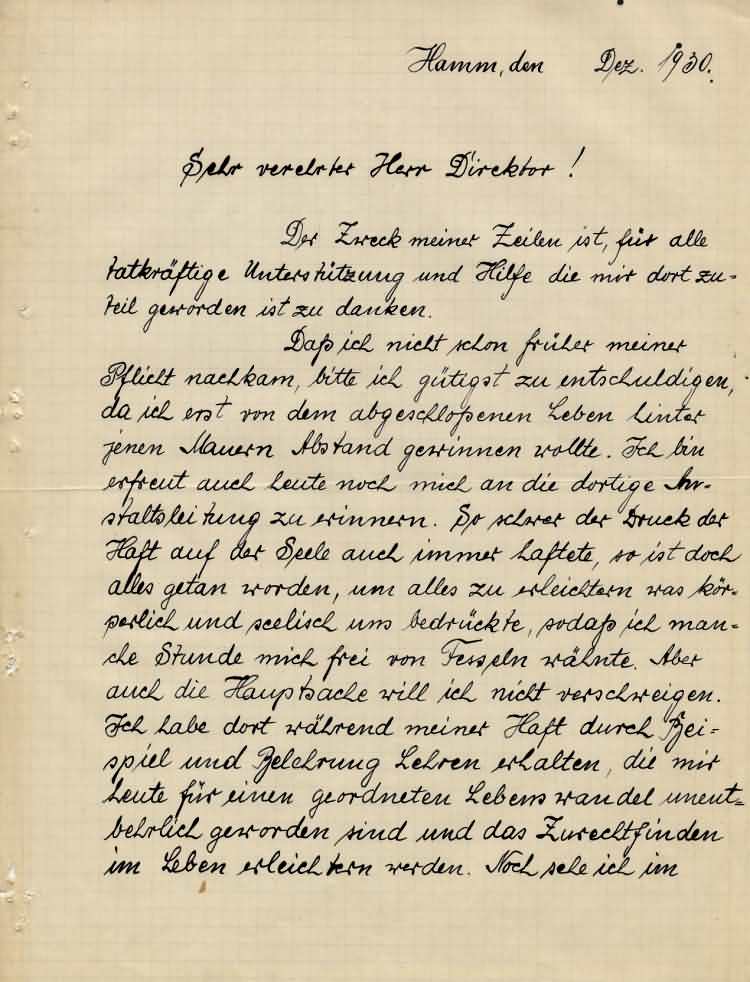 Hamm, den Dez. 1930.
Sehr verehrter Herr Direktor!
Der Zweck meiner Zeilen ist, für alle
tatkräftige Unterstützung und Hilfe die mir dort zu-
teil geworden ist zu danken.
Daß ich nicht schon früher meiner
Pflicht nachkam, bitte ich gütigst zu entschuldigen,
da ich erst von dem abgeschloßenen Leben hinter
jenen Mauern Abstand gewinnen wollte. Ich bin
erfreut auch heute noch mich an die dortige An-
staltsleitung zu erinnern. So schwer der Druck der
Haft auf der Seele auch immer haftete, so ist doch
alles getan worden, um alles zu erleichtern was kör-
perlich und seelisch uns bedrückte, sodaß ich man-
che Stunde mich frei von Fesseln wähnte. Aber
auch die Hauptsache will ich nicht verschweigen.
Ich habe dort während meiner Haft durch Bei-
spiel und Belehrung Lehren erhalten, die mir
heute für einen geordneten Lebenswandel unent-
behrlich geworden sind und das Zurechtfinden
im Leben erleichtern werden. Noch sehe ich im